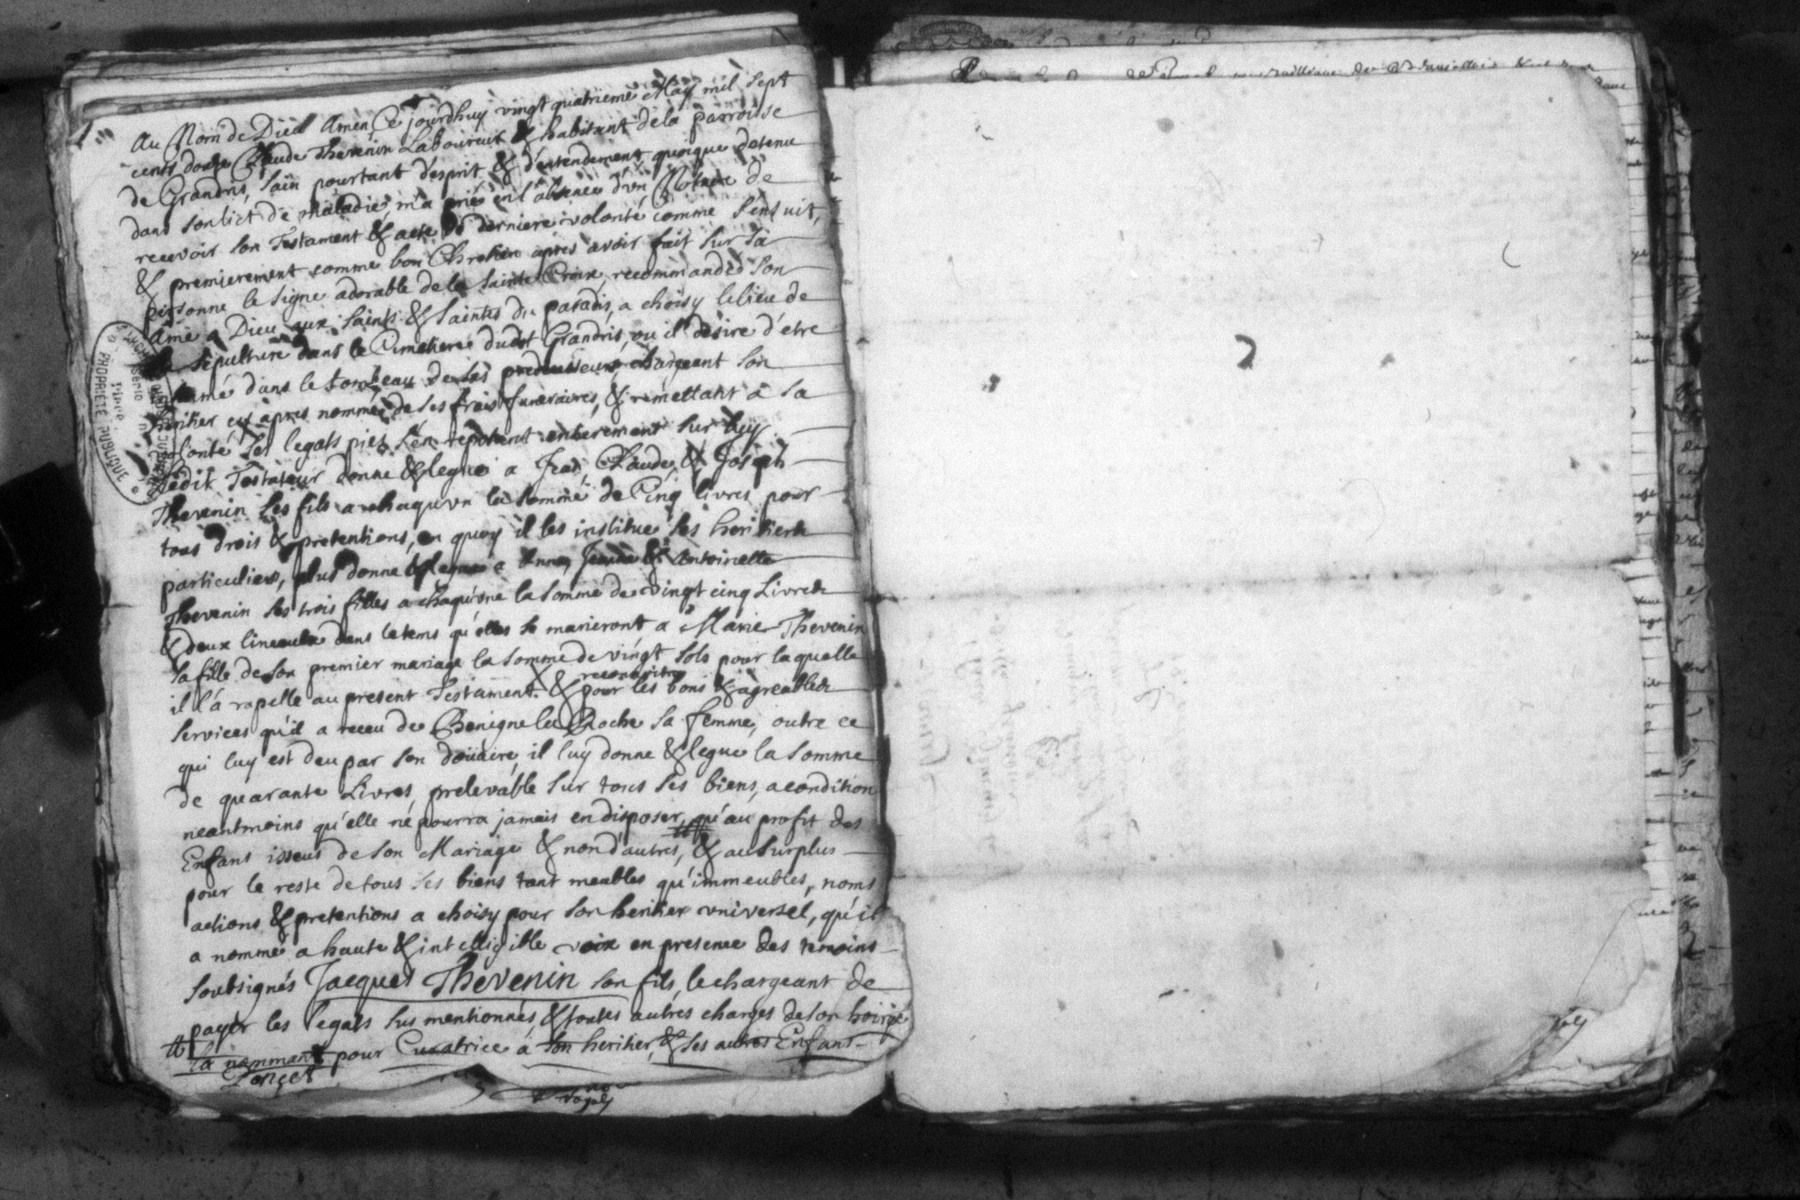 Au Nom de Dieu Amen Ce jourdhuy vingt quatrieme May mil sept
cents douze Claude Thevenin Laboureur & habitant dela parroisse
de Grandris, sain pourtant d'esprit & d'entendement quoique detenu
dans son lict de maladie, m'a prié en l'absence d'un Notaire de
recevoir son Testament & acte de derniere volonté comme s'ensuit,
& premierement comme bon Chretien apres avoir fait sur sa
personne le signe adorable de la Sainte Croix, recommanded son
Ame a Dieu aux saints & saintes du paradis, a choisy le lieu de
sa sepulture dans le Cimetiere dudt Grandris, ou il desire d'etre
inhumé dans le tombeau de ses predecesseurs, chargeant son
heritier cy après nommé de ses frais funeraires, & remettant a sa
volonté les legats pies s'en reposant entierement sur luy
Ledit Testateur donne & legue a Jean, Claude, & Joseph
Thevenin ses fils a chaqu'un la somme de Cinq livres pour
tous drois & pretentions, en quoy il les institue ses heritiers
particuliers, plus donne & legue a Anne, Jeanne & Antoinette
Thevenin ses trois filles a chaqu'une la somme de vingt cinq Livres
& deux linceulx dans le tems qu'elles se marieront a Marie Thevenin
sa fille de son premier mariage la somme de vingt sols pour laquelle
il l'a rapelle au present Testament. & pour les bons & agreables
reconnoitre
services qu'il a receu de Benigne la Roche sa femme, outre ce
qui luy est deu par son doüaire, il luy donne & legue la somme
de quarante Livres, prelevable sur tous ses biens, a condition
neantmoins qu'elle ne pourra jamais en disposer, qu'au profit des
Enfans issus de son Mariage & non d'autres, & au surplus
pour le reste de tous ses biens tant meubles qu'immeubles, noms
actions & pretentions a choisy pour son heritier universel, qu'il
a nommé a haute & intelligible voix en presence des temoins
soubsignés Jacques Thevenin son fils, le chargeant de
payer les legats sus mentionnés, & toutes autres charges de son hoirie
la nommant pour Curatrice a son heritier, & ses autres Enfans